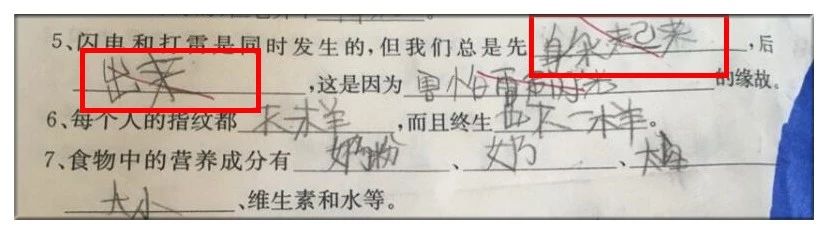 5、闪电和打雷是同时发生的,但我们总是先身永起来,后
出来,这是因为害怕雷的缘故。
6、每个人的指纹都不木羊,而且终生也不一木羊。
7、食物中的营养成分有奶粉、女乃、
大小、维生素和水等。